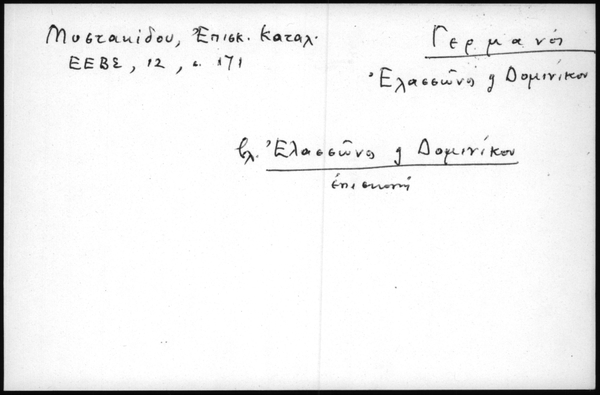 Μυστακίδου, Ἐπισκ. Καταλ.
ΕΕΒΣ, 12, σ. 171
Γερμανός
Ἐλασσῶνος ἢ Δομινίκου
βλ. Ἐλασσῶνος ἢ Δομινίκου
ἐπισκοπή